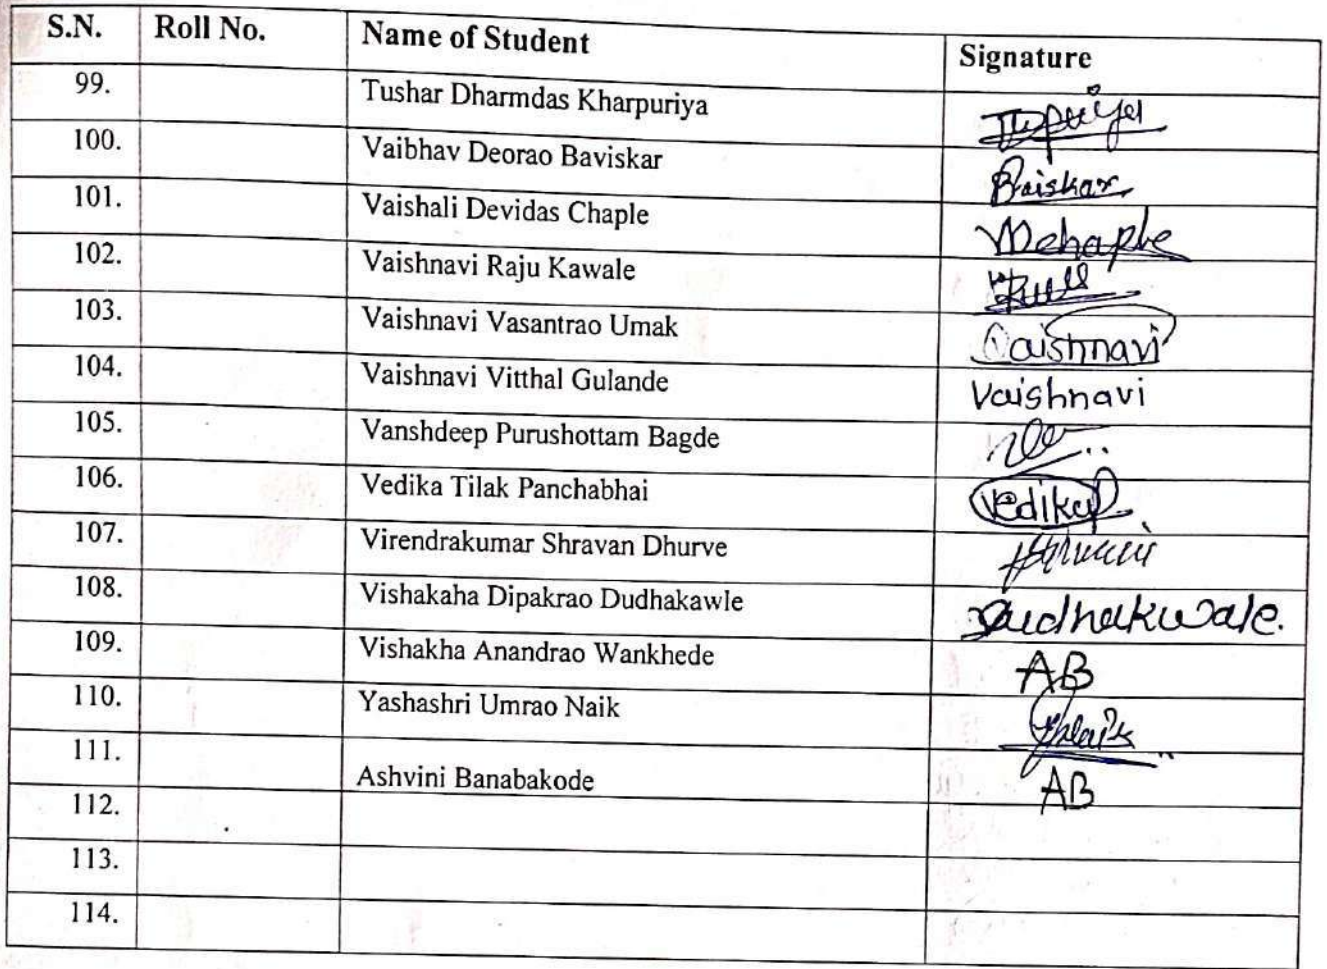 S.N. Roll No. Name of Student Signature
99. Tushar Dharmdas Kharpuriya
100. Vaibhav Deorao Baviskar Baiskar
101. Vaishali Devidas Chaple
102. Vaishnavi Raju Kawale
103. Vaishnavi Vasantrao Umak Vaishnavi
104. Vaishnavi Vitthal Gulande Vaishnavi
105. Vanshdeep Purushottam Bagde
106. Vedika Tilak Panchabhai Vedika
107. Virendrakumar Shravan Dhurve
108. Vishakaha Dipakrao Dudhakawle Dudhakwale.
109. Vishakha Anandrao Wankhede AB
110. Yashashri Umrao Naik
111. Ashvini Banabakode AB
112.
113.
114.